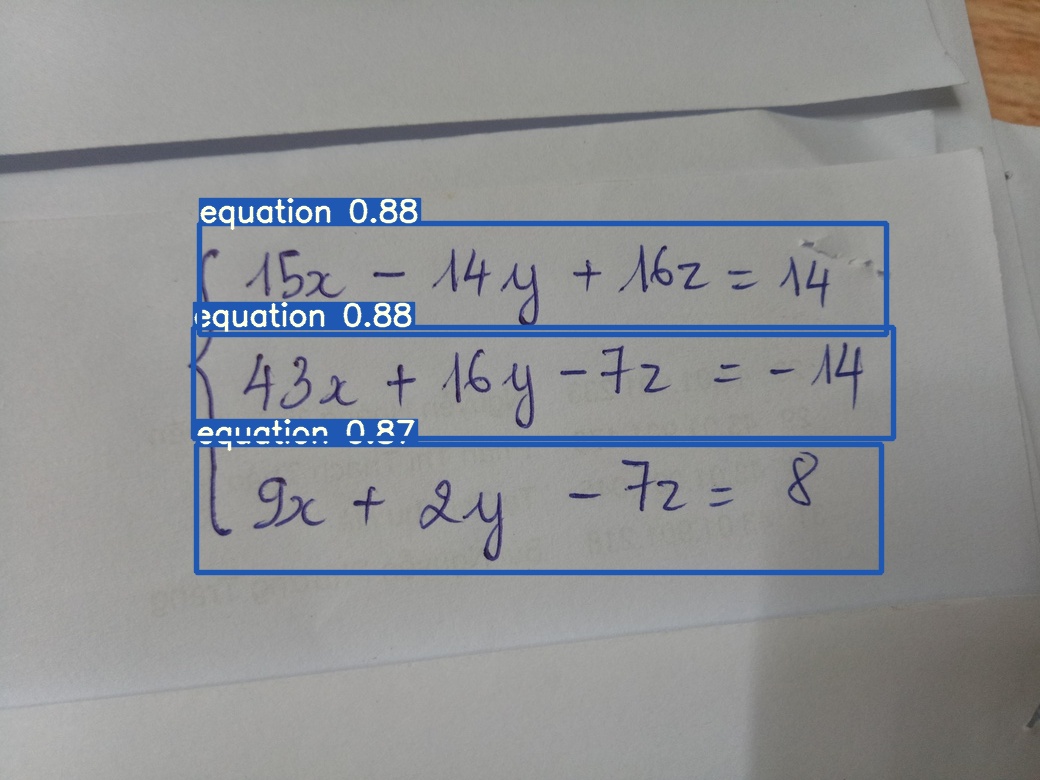 equation 0.88
15x - 14y + 16z = 14
equation 0.88
43x + 16y - 7z = - 14
equation 0.87
9x + 2y - 7z = 8